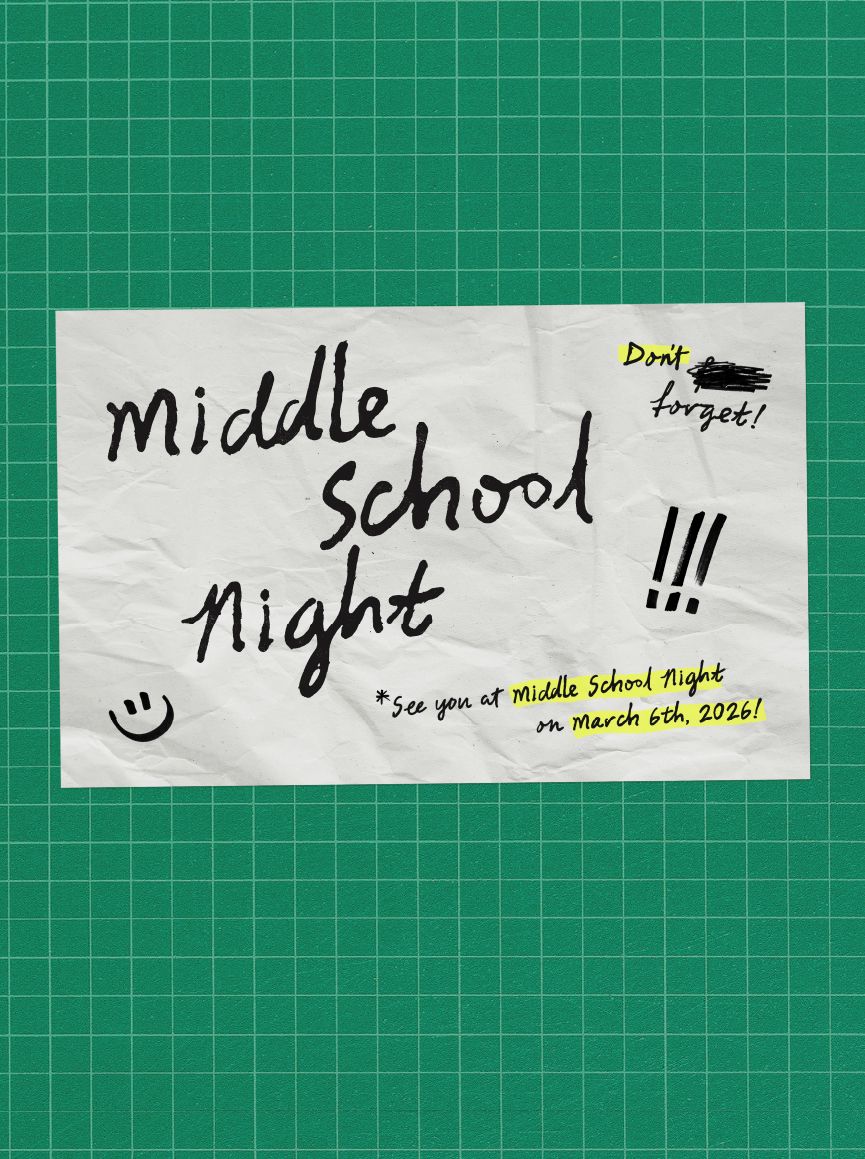 middle
School
Night
Don't
forget!
!!!
*See you at Middle School Night
on March 6th, 2026!